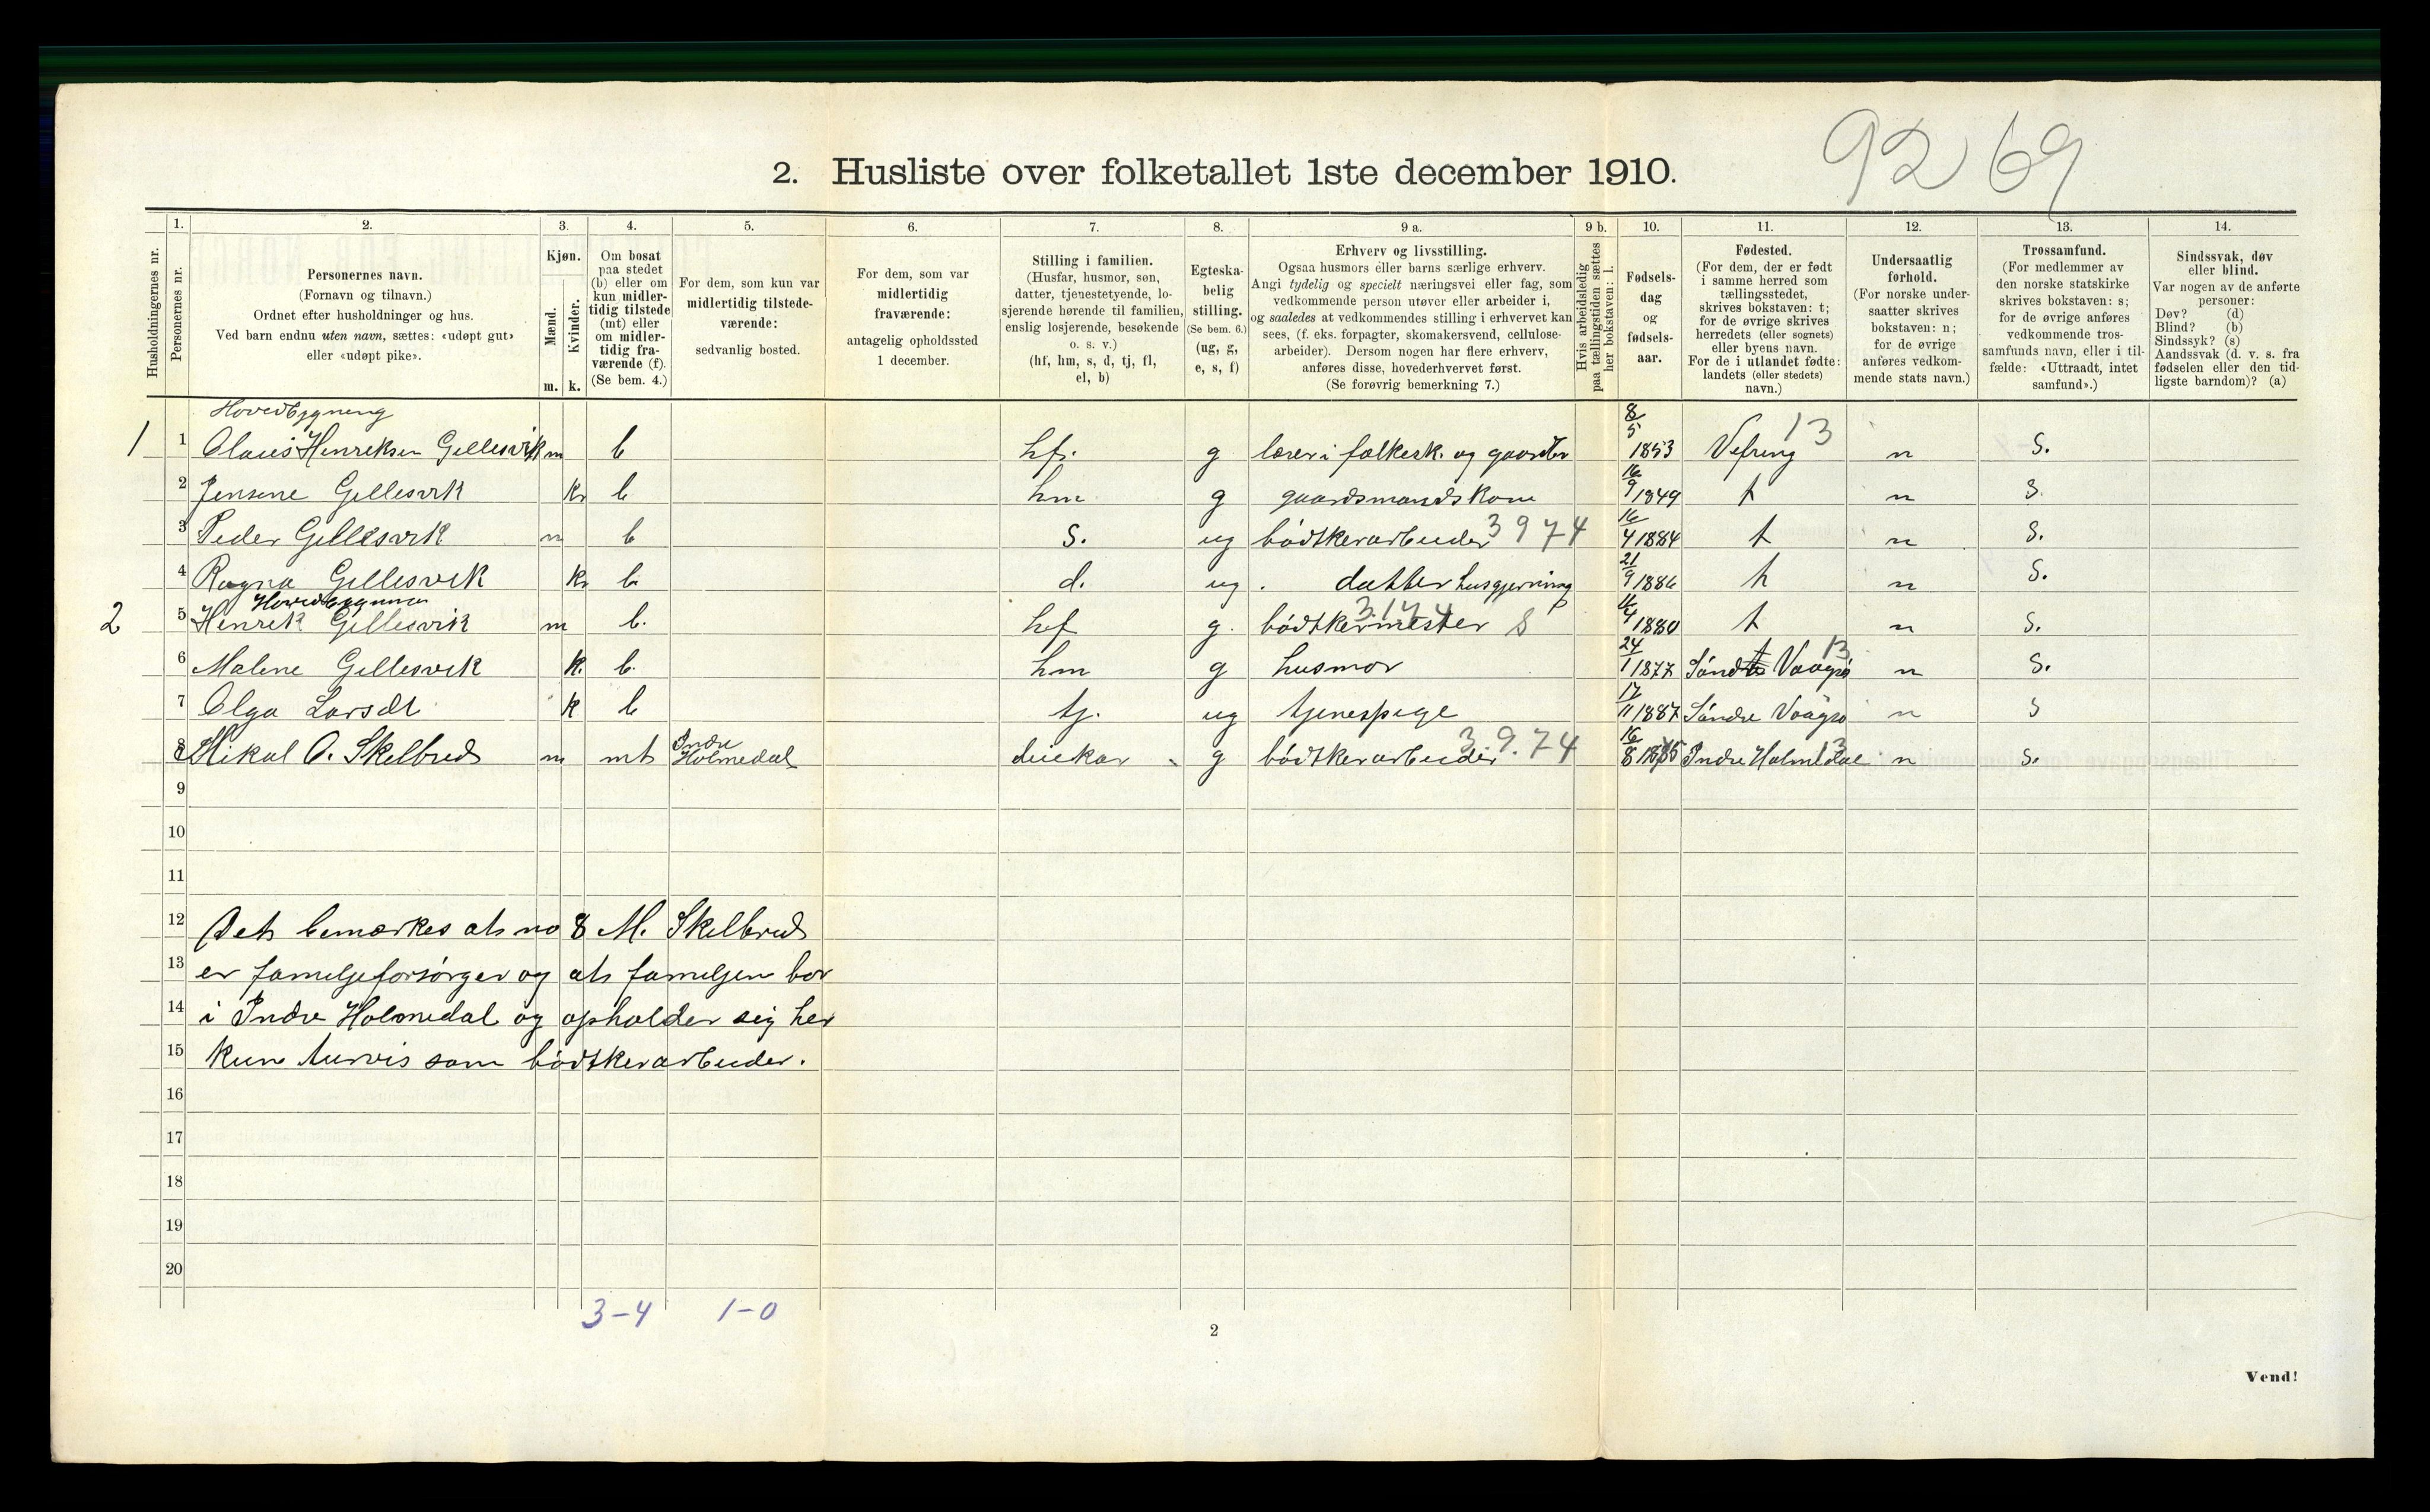 92 69
2. Husliste over folketallet 1ste december 1910.
Husholdningernes nr.
1. Personernes nr.
2. Personernes navn. (Fornavn og tilnavn.) Ordnet efter husholdninger og hus. Ved barn endnu uten navn, sættes: «udøpt gut» eller «udøpt pike».
3. Kjøn. Mænd. m. Kvinder. k.
4. Om bosat paa stedet (b) eller om kun midlertidig tilstede (mt) eller om midlertidig fraværende (f). (Se bem. 4.)
5. For dem, som kun var midlertidig tilstedeværende: sedvanlig bosted.
6. For dem, som var midlertidig fraværende: antagelig opholdssted 1 december.
7. Stilling i familien. (Husfar, husmor, søn, datter, tjenestetyende, losjerende hørende til familien, enslig losjerende, besøkende o. s. v.) (hf, hm, s, d, tj, fl, el, b)
8. Egteskabelig stilling. (Se bem. 6.) (ug, g, e, s, f)
9 a. Erhverv og livsstilling. Ogsaa husmors eller barns særlige erhverv. Angi tydelig og specielt næringsvei eller fag, som vedkommende person utøver eller arbeider i, og saaledes at vedkommendes stilling i erhvervet kan sees, (f. eks. forpagter, skomakersvend, cellulosearbeider). Dersom nogen har flere erhverv, anføres disse, hovederhvervet først. (Se forøvrig bemerkning 7.)
9 b. Hvis arbeidsledig paa tællingstiden sættes her bokstaven: l.
10. Fødselsdag og fødselsaar.
11. Fødested. (For dem, der er født i samme herred som tællingsstedet, skrives bokstaven: t; for de øvrige skrives herredets (eller sognets) eller byens navn. For de i utlandet fødte: landets (eller stedets) navn.)
12. Undersaatlig forhold. (For norske undersaatter skrives bokstaven: n; for de øvrige anføres vedkommende stats navn.)
13. Trossamfund. (For medlemmer av den norske statskirke skrives bokstaven: s; for de øvrige anføres vedkommende trossamfunds navn, eller i tilfælde: «Uttraadt, intet samfund».)
14. Sindssvak, døv eller blind. Var nogen av de anførte personer: Døv? (d) Blind? (b) Sindssyk? (s) Aandssvak (d. v. s. fra fødselen eller den tidligste barndom)? (a)
Hovedbygning
1 1 Olaus Henriksen Gillesvik m b hf. g lærer i folkesk. og gaardbr 8/5 1853 Vefring 13 n S.
2 Jensine Gillesvik k b hm g gaardsmandskone 16/9 1849 t n S.
3 Peder Gillesvik m b S. ug bødtkerarbeider 3974 16/4 1884 t n S.
4 Ragna Gillesvik k b. d. ug. datter husgjerning 21/9 1886 t n S.
Hovedbygning
2 5 Henrik Gillesvik m b. hf g. bødtkermester 3.174 8 /4 1880 t n S.
6 Malene Gillesvik k. b. hm g husmor 24/1 1877 Søndre Vaagsø 13 n S.
7 Olga Larsdt k b tj. ug tjenespige 17/11 1887 Søndre Vaagsø n S
8 Mikal O. Skelbred m mt Indre Holmedal g bødtkerarbeider 3.9.74 16/8 Indre Holmedal 13 n S.
9
10
11
12 Det bemærkes at no 8 M. Skelbred
13 er familjeforsørger og at familjen bor
14 i Indre Holmedal og opholder sig her
15 kun turvis som bødtkerarbeider.
16
17
18
19
20
3-4 1-0
2
Vend!